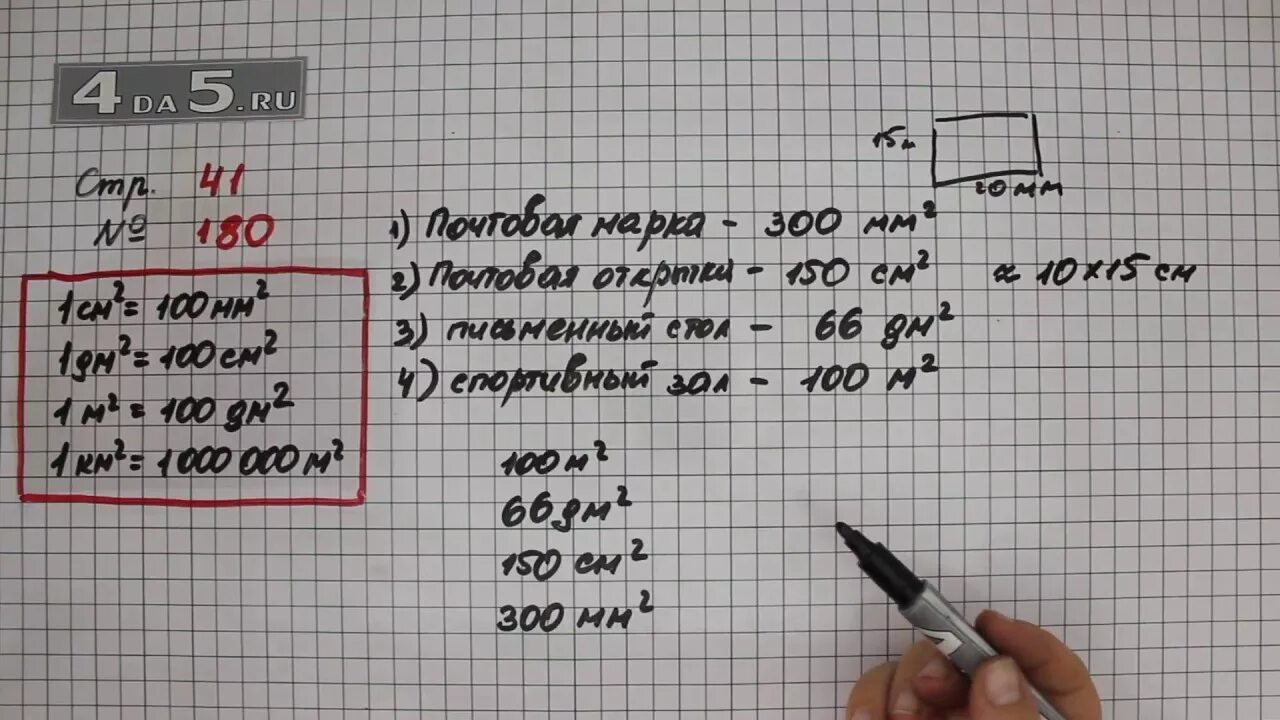 4DA5.RU
Стр. 41
№ 180
1 см² = 100 мм²
1 дм² = 100 см²
1 м² = 100 дм²
1 км² = 1 000 000 м²
15м
20 мм
1) Почтовая марка - 300 мм²
2) Почтовая открытка - 150 см² ≈ 10 × 15 см
3) письменный стол - 66 дм²
4) спортивный зал - 100 м²
100 м²
66 дм²
150 см²
300 мм²